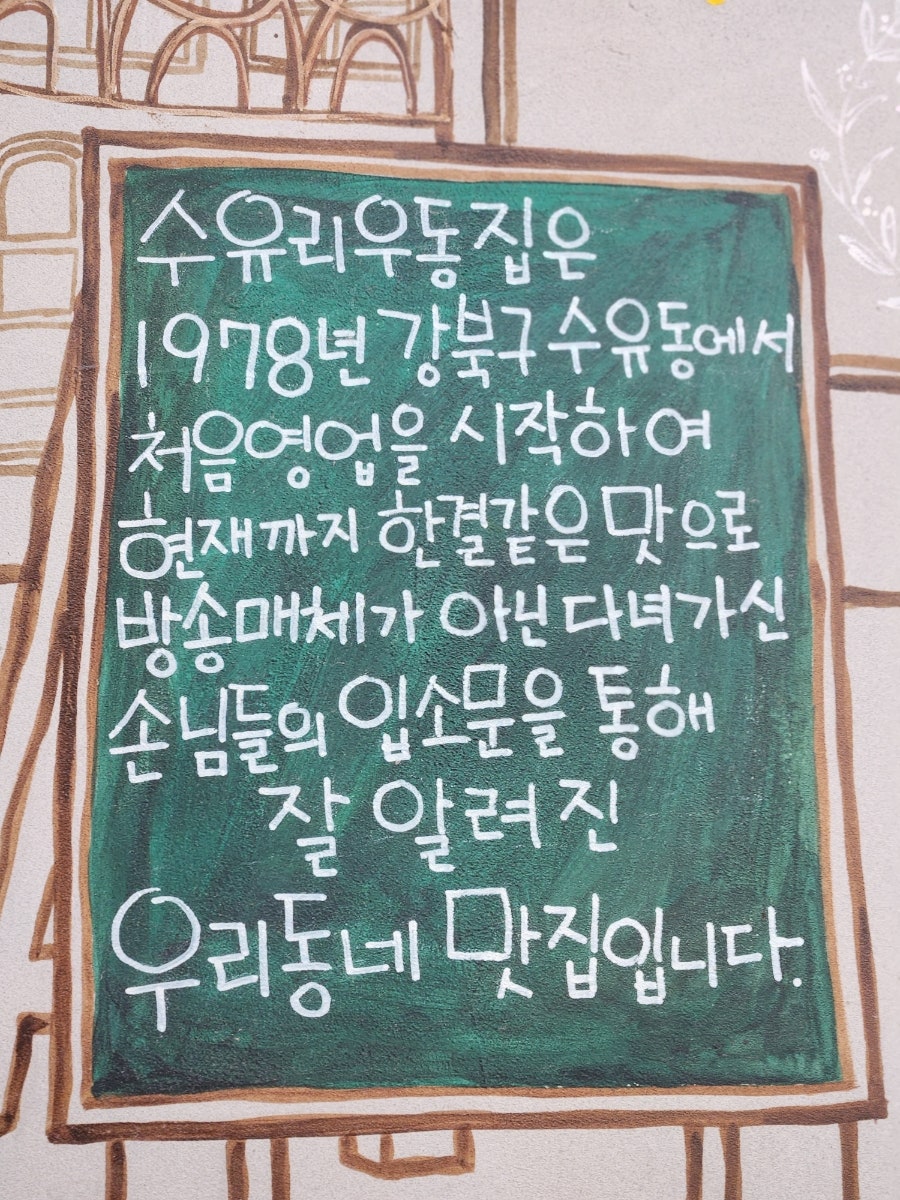 수유리우동집은
1978년 강북구 수유동에서
처음영업을 시작하여
현재까지 한결같은 맛으로
방송매체가 아닌 다녀가신
손님들의 입소문을 통해
잘 알려진
우리동네 맛집입니다.